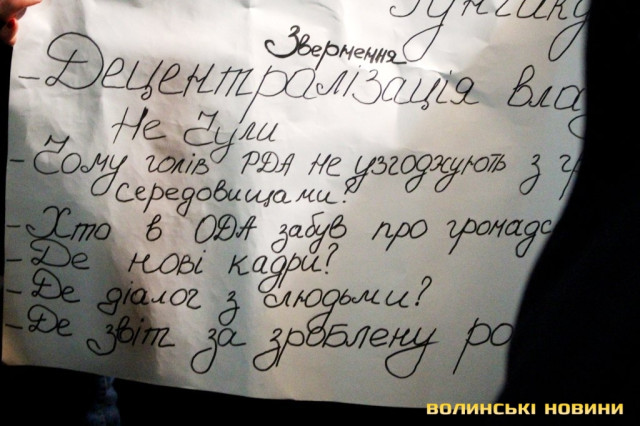 Звернення
– Децентралізація вла
Не Чули
– Чому голів РДА не узгоджують з г
середовищами?
– Хто в ОДА забув про громадс
– Де нові кадри?
– Де діалог з людьми?
– Де звіт за зроблену ро
ВОЛИНСЬКІ НОВИНИ